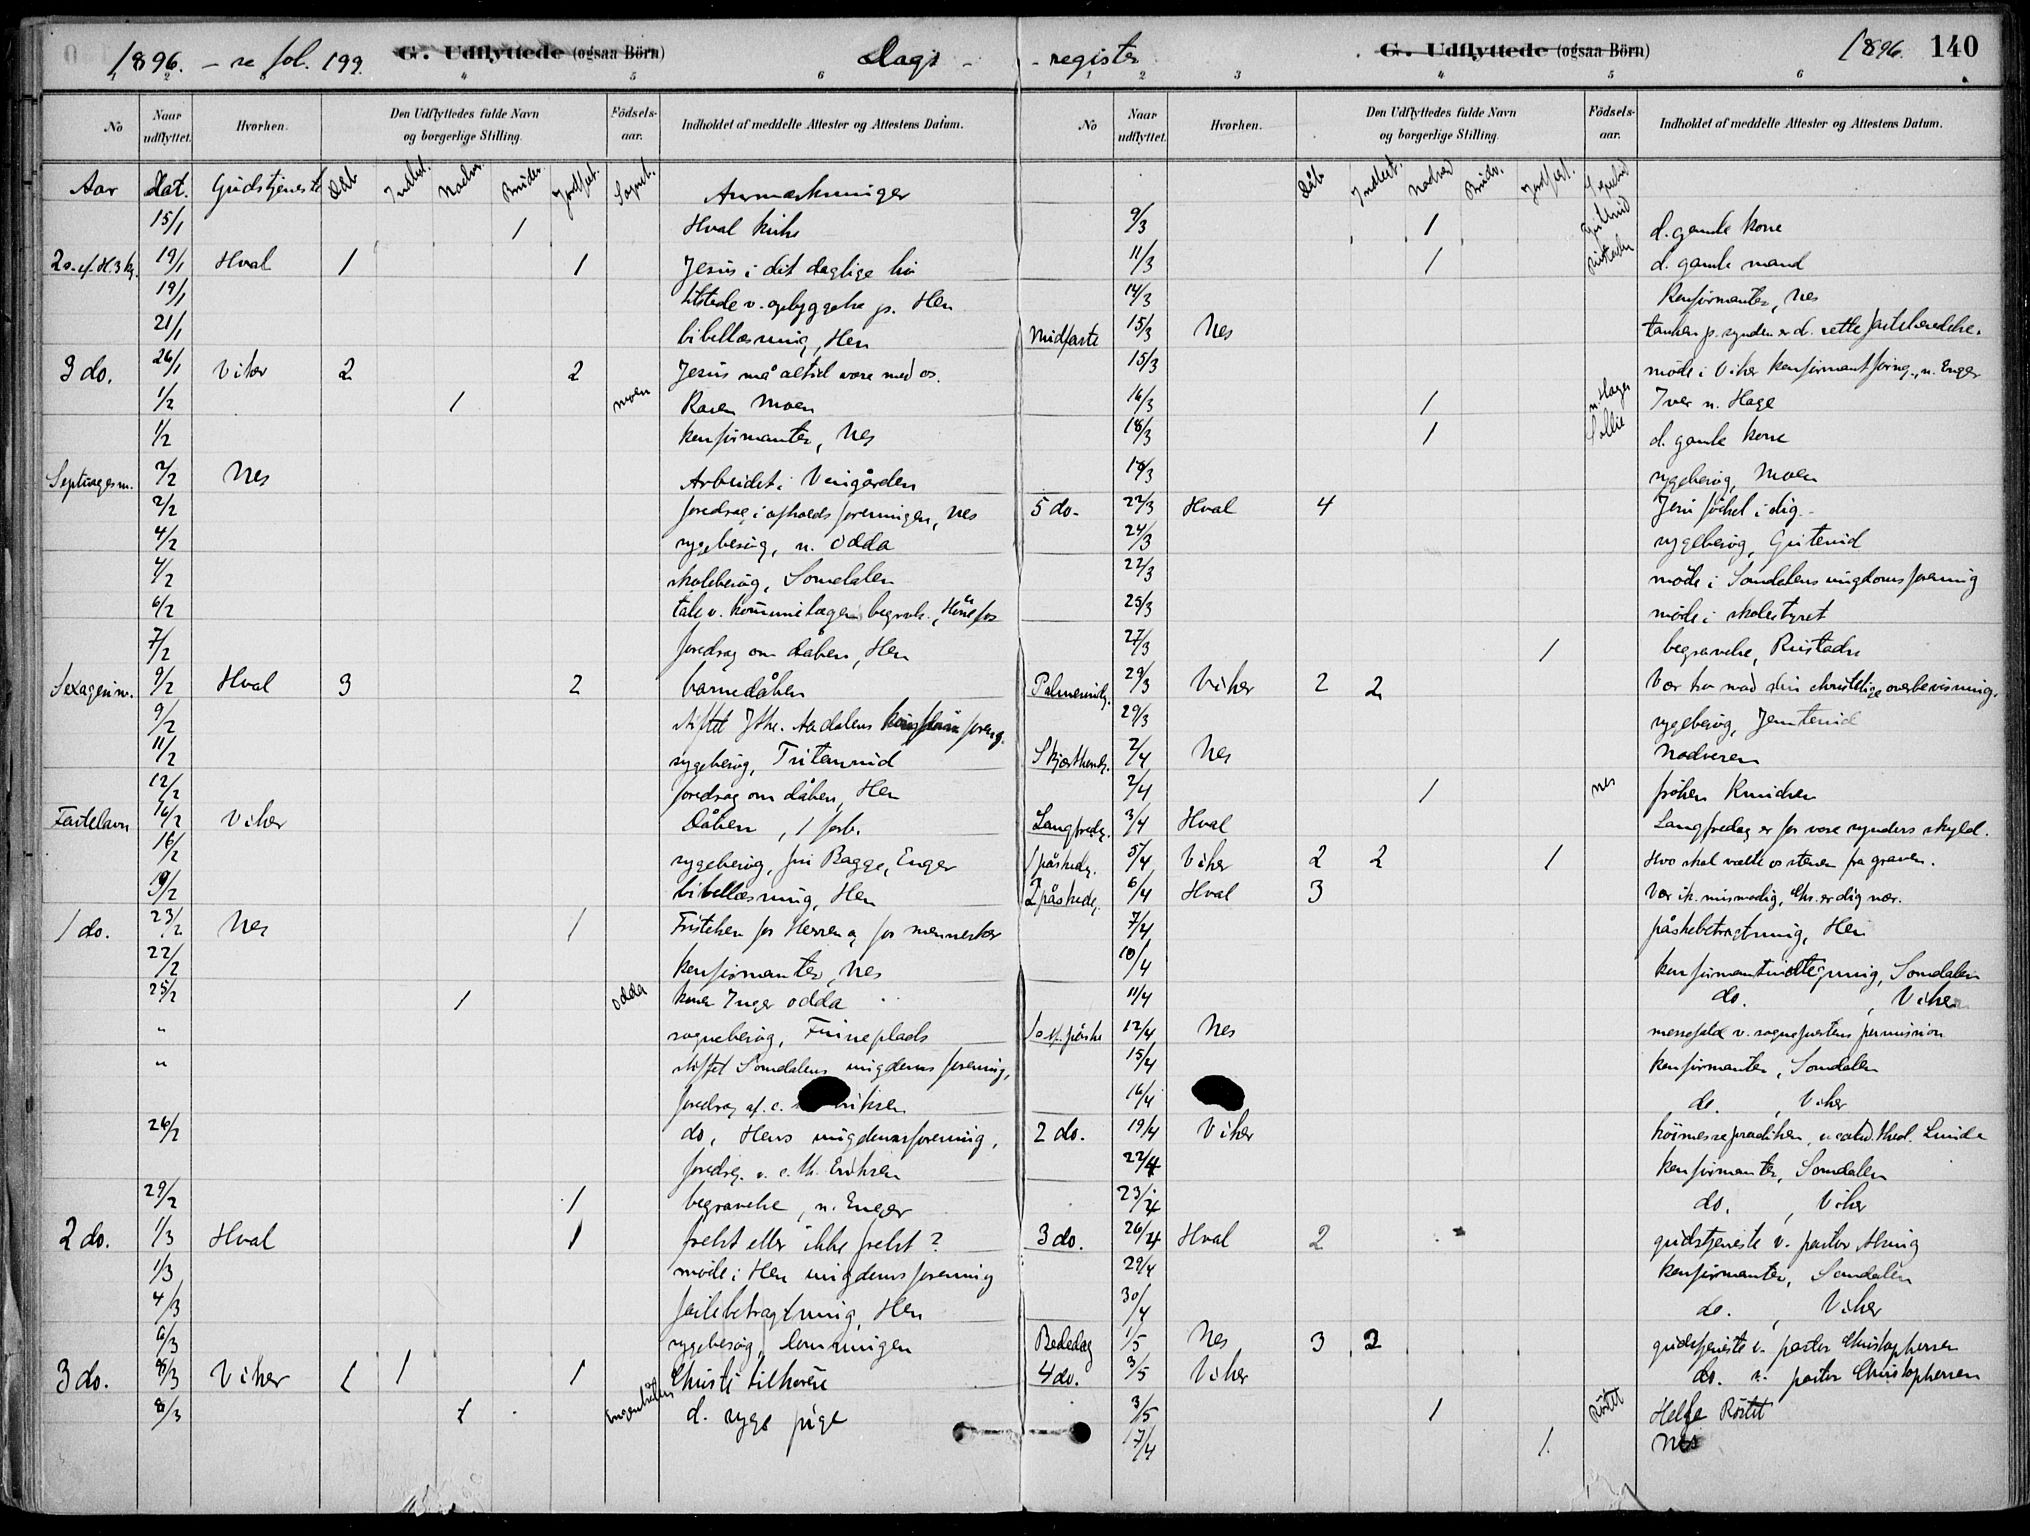 1896. – se fol. 199. G. Udflyttede (ogsaa Börn) Dags -
No Naar udflyttet. Hvorhen. Den Udflyttedes fulde Navn og borgerlige Stilling. Födsels-aar. Indholdet af meddelte Attester og Attestens Datum.
Aar Dat. Gudstjeneste Dåb Indled. Nadv. Brudev. Jordfæst. Sogneb. Anmærkninger
15/1 1 Hval kirke
2 s. e. H. 3 k. 19/1 Hval 1 1 Jesus i det daglige liv
19/1 tilstede v. opbyggelse p. Hen
21/1 bibellæsning, Hen
3 do. 26/1 Viker 2 2 Jesus må altid være med os.
1/2 1 moen Karen Moen
1/2 konfirmanter, Nes
Septuagesm. 2/2 Nes Arbeidet i Vingården
2/2 foredrag i afholdsforeningen, Nes
4/2 sygebesøg, n. Odda
4/2 skolebesøg, Somdalen
6/2 tale v. kommunelægens begrav., Hønefos
7/2 foredrag om dåben, Hen
Sexagesim. 9/2 Hval 3 2 barnedåben
9/2 stiftet Ytre Aadalens foreng.
11/2 sygebesøg,
12/2 foredrag om dåben, Hen
Fastelavn 16/2 Viker Dåben, 1 forb.
16/2 sygebesøg, fru Bagge, Enger
19/2 bibellæsning, Hen
1 do. 23/2 Nes 1 Fristelsen for Herren og for mennesker
22/2 konfirmanter, Nes
25/2 1 Odda kone Inger Odda
" sognebesøg, Finneplads
" stiftet Somdalens ungdomsforening,
foredrag af c. Eriksen
26/2 do, Hens ungdomsforening,
foredrg. v. c. th. Eriksen
29/2 1 begravelse, n. Enger
2 do. 1/3 Hval 1 frelst eller ikke frelst?
1/3 møde i Hen ungdomsforening
4/3 fastebetragtning, Hen
6/3 sygebesøg,
3 do. 8/3 Viker 1 1 1 Christi tilhørere
8/3 1 d. syge pige
- register G. Udflyttede (ogsaa Börn) 1896. 140
No Naar udflyttet. Hvorhen. Den Udflyttedes fulde Navn og borgerlige Stilling. Födsels-aar. Indholdet af meddelte Attester og Attestens Datum.
Dåb Indled. Nadver Brudv. Jordfæst. Sognebud
9/3 1 d. gamle kone
11/3 1 d. gamle mand
14/3 Konfirmanter, Nes
Midfaste 15/3 Nes tanken p. synden er d. rette fasteberedelse.
15/3 møde i Viker konfirmantforng., n. Enger
16/3 1 n. Hager Iver n. Hage
18/3 1 Sollie d. gamle kone
18/3 sygebesøg, Moen
5 do. 22/3 Hval 4 Jesu fødsel i dig.
24/3 sygebesøg,
22/3 møde i Somdalens ungdomsforening
25/3 møde i skolestyret
27/3 1 begravelse, Rustadn
Palmesøndg. 29/3 Viker 2 2 Vær tro mod din christelige overbevisning.
29/3 sygebesøg,
Skjærthorsdg. 2/4 Nes Nadveren
2/4 1 nes frøken Knudsen
Langfredg. 3/4 Hval Langfredag er for vore synders skyld.
1 påskedg. 5/4 Viker 2 2 1 Hvo skal vælte os stenen fra graven.
2 påskedg. 6/4 Hval 3 Vær ik. mismodig, Chr. er dig nær.
7/4 påskebetragtning, Hen
10/4 konfirmantindtegning, Somdalen
11/4 do. , Viker
1 s. e. påske 12/4 Nes messefald v. sogneprestens permission
15/4 konfirmanter, Somdalen
16/4 do. , Viker
2 do. 19/4 Viker høimesseprædiken, v. cand. theol. Linde
22/4 konfirmanter, Somdalen
23/4 do. , Viker
3 do. 26/4 Hval 2 gudstjeneste v. pastor
29/4 konfirmanter, Somdalen
30/4 do. , Viker
Bededag 1/5 Nes 3 2 gudstjeneste v. pastor Christophersen
4 do. 3/5 Viker do. v. pastor Christophersen
3/5 1 Röstet Helge Röstet
17/4 1 Nes